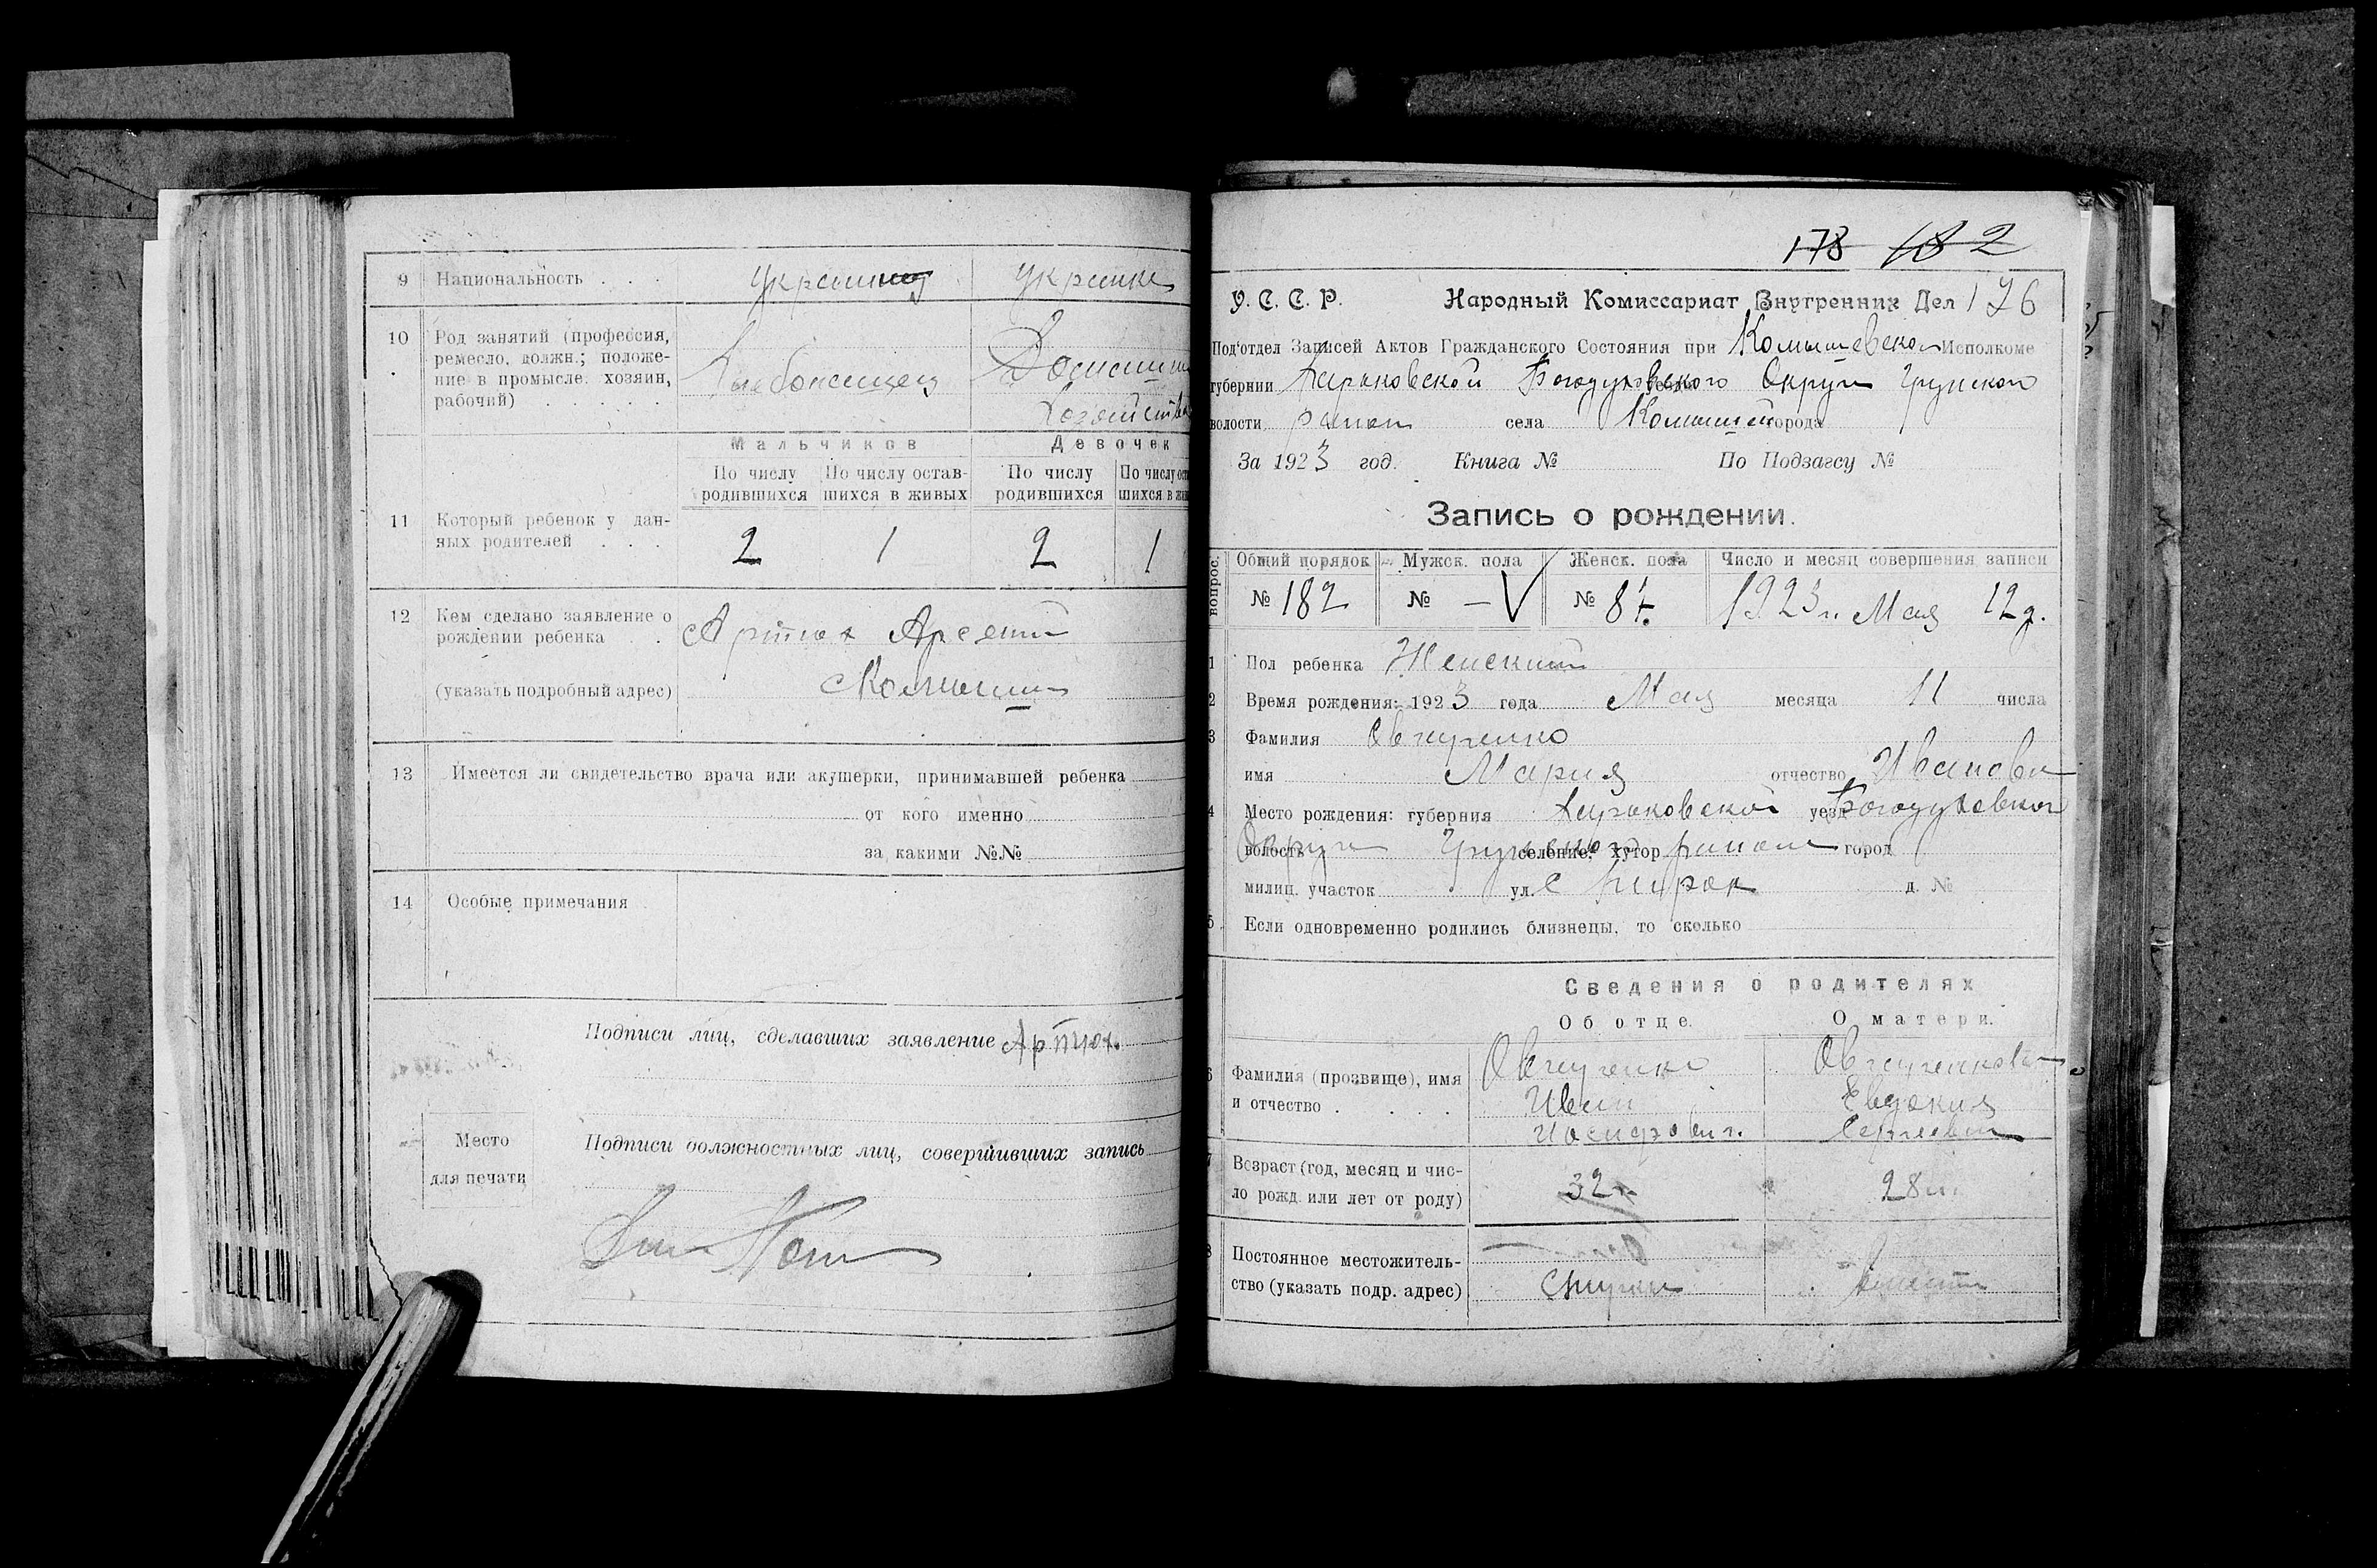 9 Национальность . . . Украинец Украинка
10 Род занятий (профессия,
ремесло, должн.; положе-
ние в промысле: хозяин,
рабочий) . . . . .
Хлебопашец Домашн
Хозяйства
Мальчиков Девочек
По числу родившихся По числу оставшихся в живых По числу родившихся По числу ост
шихся в жи
11 Который ребенок у дан-
ных родителей . . .
2 1 2 1
12 Кем сделано заявление о
рождении ребенка . .
Артюх Арсений
(указать подробный адрес) с Комыши
13 Имеется ли свидетельство врача или акушерки, принимавшей ребенка
от кого именно
за какими №№
14 Особые примечания
Подписи лиц, сделавших заявление Артюх.
Место
для печати
Подписи должностных лиц, совершивших запись
178 182
У. С. С. Р. Народный Комиссариат Внутренних Дел 176
Под'отдел Записей Актов Гражданского Состояния при Комышевском Исполкоме
губернии Харьковской Богодуховского Округа Грунского
волости района села Комыши города
За 1923 год. Книга № По Подзагсу №
Запись о рождении.
вопрос. Общий порядок Мужск. пола Женск. пола Число и месяц совершения записи
№ 182 № — V № 87. 1923 г. Мая 12 д.
1 Пол ребенка Женский
2 Время рождения: 1923 года Мая месяца 11 числа
3 Фамилия Овчуренко
имя Мария отчество Ивановна
4 Место рождения: губерния Харьковской уезд Богодуховского
волость Округа Грунского селение, хутор района город
милиц. участок ул. с д. №
5 Если одновременно родились близнецы, то сколько
Сведения о родителях
Об отце. О матери.
6 Фамилия (прозвище), имя
и отчество . . . .
Овчуренко Иван Иосифович. Овчуренкова Евдокия Сергеевна
7 Возраст (год, месяц и чис-
ло рожд. или лет от роду)
32 28
8 Постоянное местожитель-
ство (указать подр. адрес)